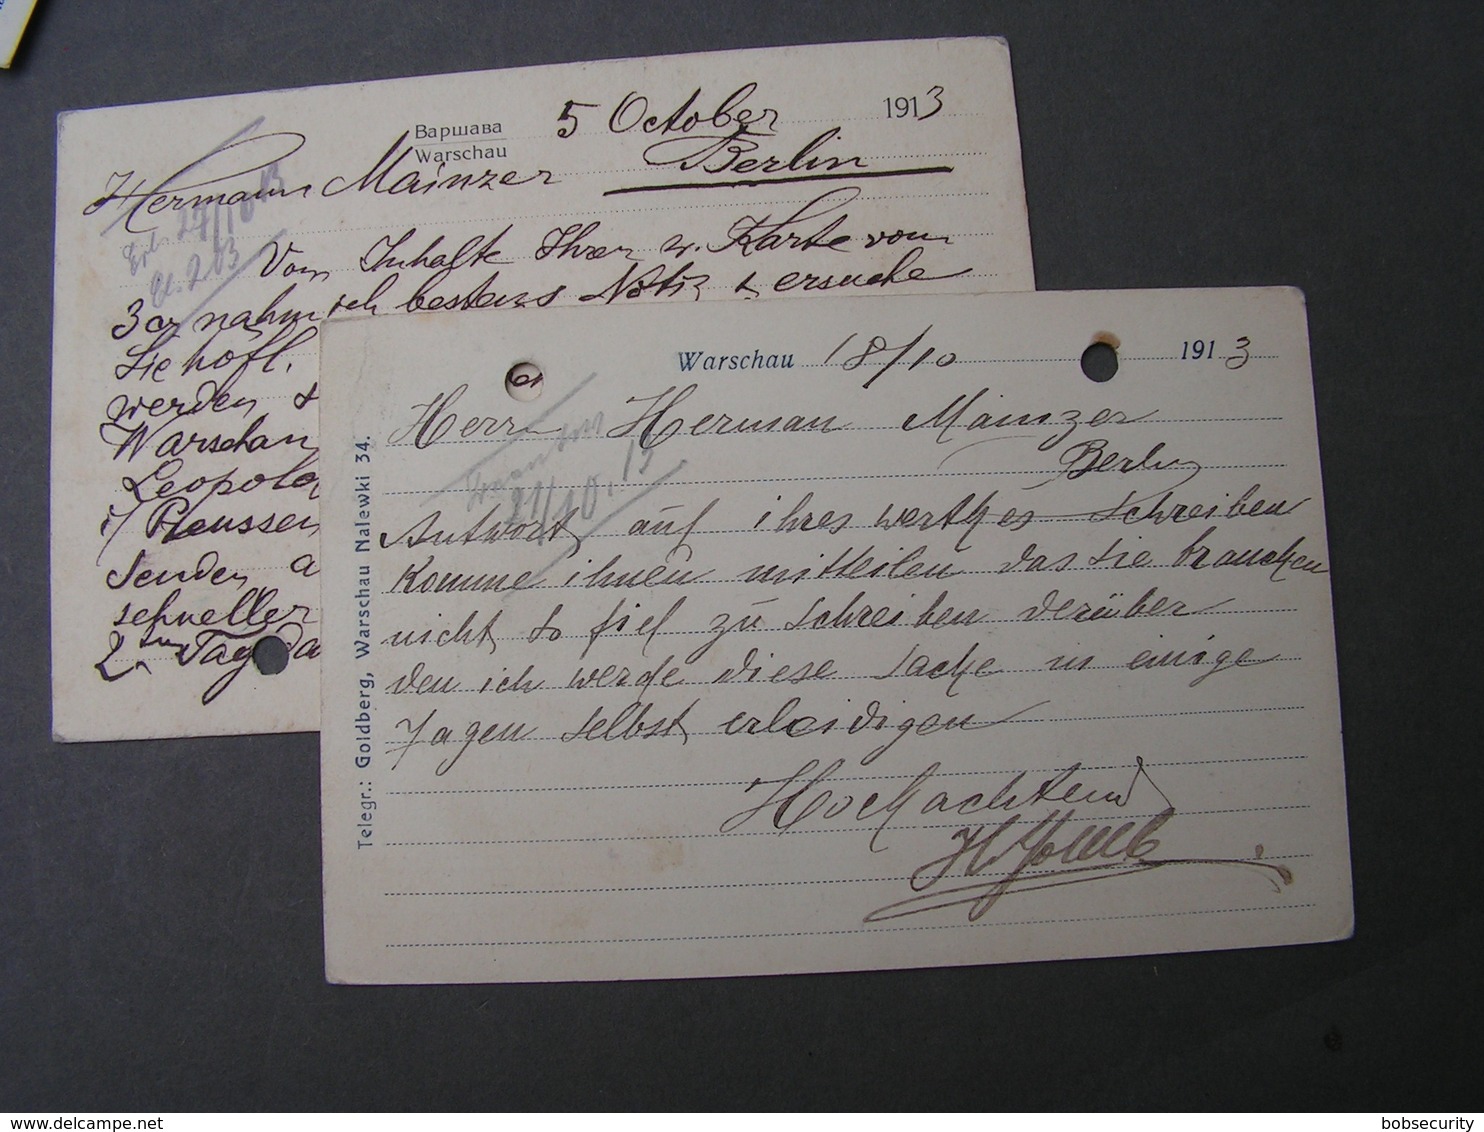 Варшава
Warschau
5 October 1913
Hermann Mainzer Berlin
Vom Inhalte Ihrer w. Karte vom
3 cr nahm ich bestens Notiz & ersuche
Sie höfl.
werden &
Warschau
Leopold
i/ Preussen
Senden a
schneller
2 Tag da
27/10 13
Warschau 18/10 1913
Herr Herman Mainzer
Berlin
21/10. 13
Antwort auf ihres werthes Schreiben
Komme ihnen mitteilen das Sie brauchen
nicht so fiel zu schreiben derüber
den ich werde diese Sache in einige
Tagen selbst erleidigen
Hochachtend
Telegr.: Goldberg, Warschau Nalewki 34.
bobsecurity